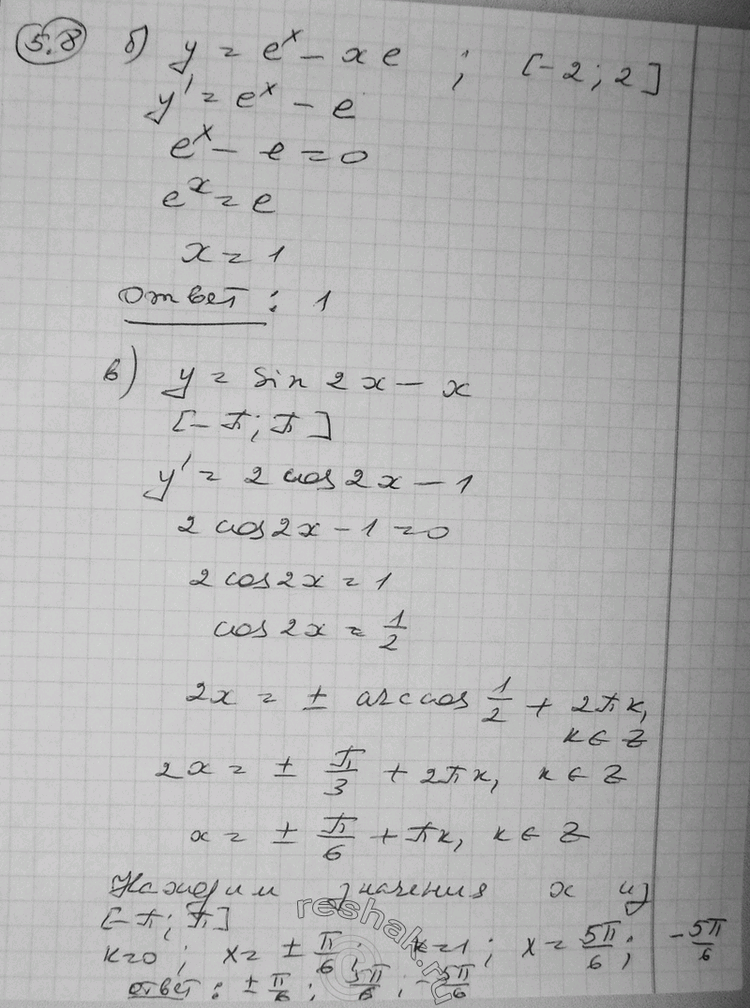 5.8 б) y = eˣ - xe ; [-2; 2]
y' = eˣ - e
eˣ - e = 0
eˣ = e
x = 1
Ответ: 1
в) y = sin 2x - x
[-π; π]
y' = 2 cos 2x - 1
2 cos 2x - 1 = 0
2 cos 2x = 1
cos 2x = 1/2
2x = ± arccos 1/2 + 2πk,
k ∈ Z
2x = ± π/3 + 2πk, k ∈ Z
x = ± π/6 + πk, k ∈ Z
Находим значения x из
[-π; π]
k=0; x = ± π/6; k=1; x = 5π/6; -5π/6
Ответ: ± π/6; 5π/6; -5π/6
reshak.ru